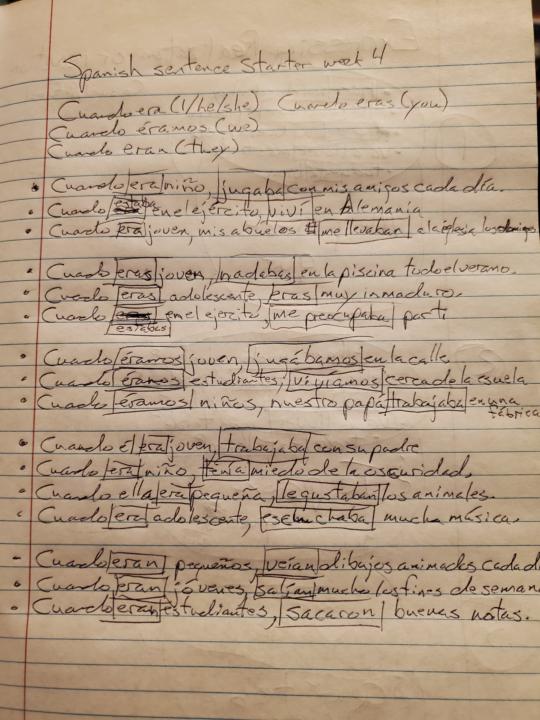 Spanish sentence starter week 4
Cuando era (I/he/she) Cuando eras (you)
Cuando éramos (we)
Cuando eran (they)
• Cuando era niño, jugaba con mis amigos cada día.
• Cuando estaba en el ejército, viví en Alemania
• Cuando era joven, mis abuelos me llevaban a la iglesia los domingos
• Cuando eras joven, nadabas en la piscina todo el verano.
• Cuando eras adolescente, eras muy inmaduro.
• Cuando estabas en el ejercito, me preocupaba por ti
• Cuando éramos joven, jugábamos en la calle
• Cuando éramos estudiantes, vivíamos cerca de la esuela
• Cuando éramos niños, nuestro papá trabajaba en una fábrica
• Cuando él era joven, trabajaba con su padre
• Cuando era niño, tenía miedo de la oscuridad,
• Cuando ella era pequeña, le gustaban los animales.
• Cuando era adolescente, escuchaba mucha música.
- Cuando eran pequeños, veían dibujos animados cada d
• Cuando eran jóvenes, salían mucho los fines de semana
• Cuando eran estudiantes, sacaron buenas notas.